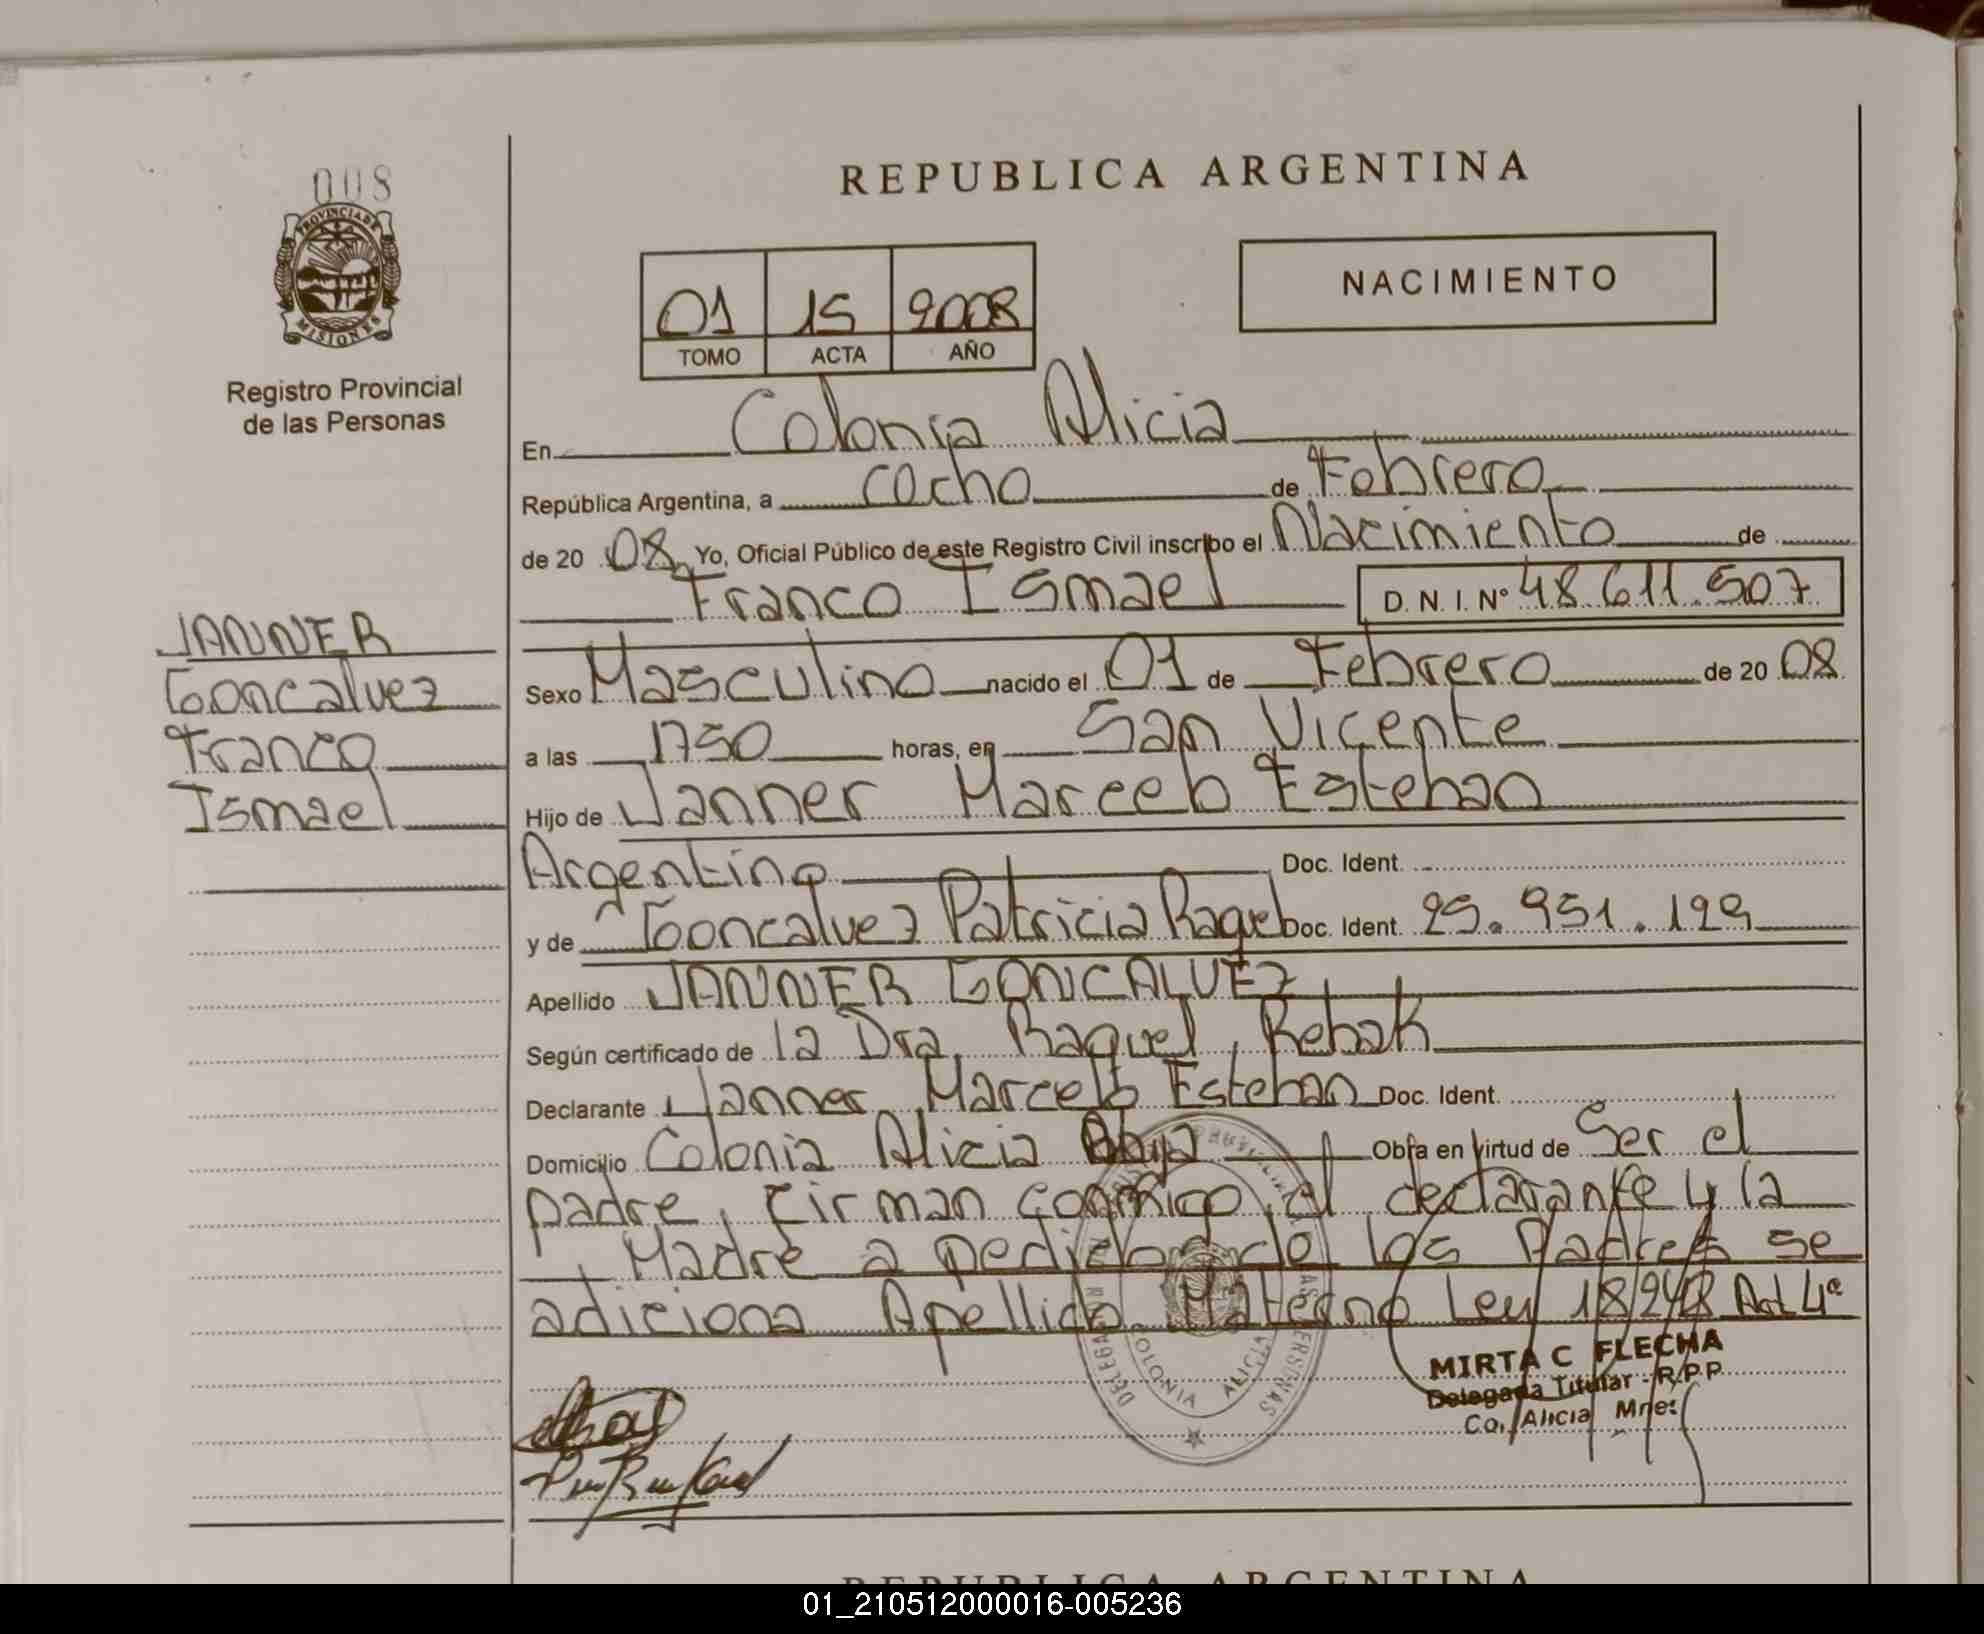 008
PROVINCIA DE
MISIONES
Registro Provincial
de las Personas
REPUBLICA ARGENTINA
01 15 2008
TOMO ACTA AÑO
NACIMIENTO
En Colonia Alicia
República Argentina, a ocho de Febrero
de 20 08 Yo, Oficial Público de este Registro Civil inscribo el Nacimiento de
Franco Ismael D.N.I. Nº 48.611.507
JANNER
Goncalvez
Franco
Ismael
Sexo Masculino nacido el 01 de Febrero de 20 08
a las 1750 horas, en San Vicente
Hijo de Janner Marcelo Esteban
Argentino Doc. Ident.
y de Goncalvez Patricia Raquel Doc. Ident. 25.951.129
Apellido JANNER GONCALVEZ
Según certificado de la Dra. Raquel, Rehak
Declarante Janner, Marcelo Esteban Doc. Ident.
Domicilio Colonia Alicia Baja Obra en virtud de Ser el
padre, firman conmigo el declarante y la
Madre a pedido de los Padres se
adiciona Apellido Materno Ley 18248 Art 4º
COLONIA ALICIA
MIRTA C FLECHA
Delegada Titular - R.P.P.
Co. Alicia Mnes
REPUBLICA ARGENTINA
01_210512000016-005236